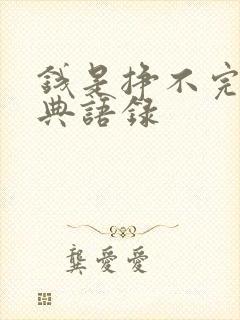 钱是挣不完
典語錄
龔愛愛